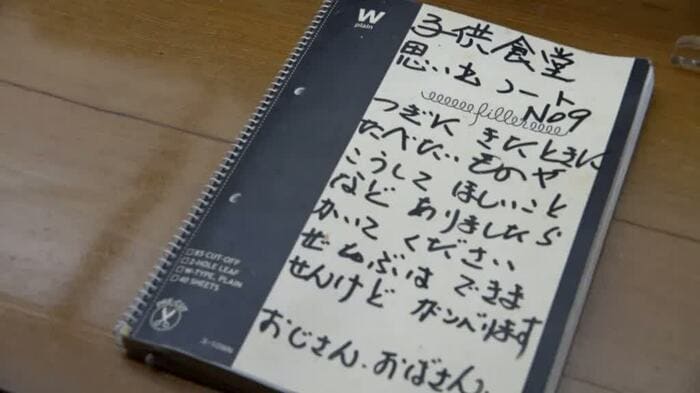 W
plain
子供食堂
思い出ノート
No9
filler
つぎに きたときに
たべたいものや
こうして ほしいこと
など ありましたら
かいて ください
ぜんぶは できま
せんけど ガンバります
おじさん、おばさん、
□B5 CUT-OFF
□2-HOLE LEAF
□W-TYPE, PLAIN
□40 SHEETS